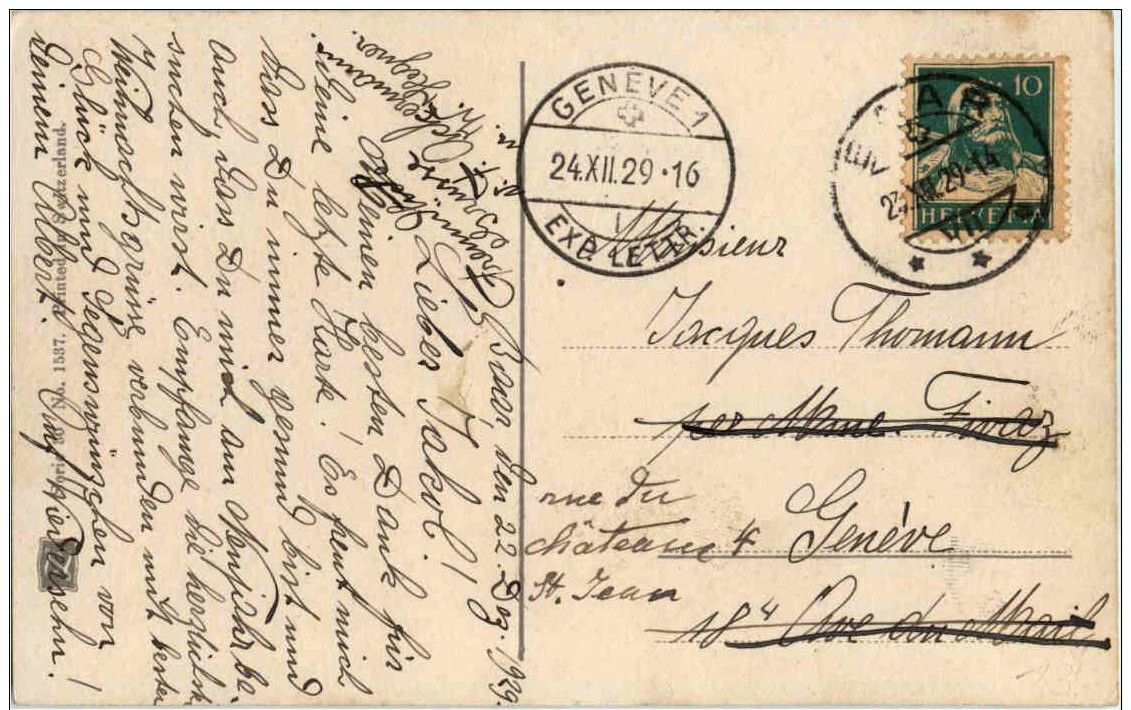 Baar den 22. Dez. 1929.
Lieber Jakob!
Meinen besten Dank für
Deine letzte Karte! Es freut mich
dass Du immer gesund bist und
auch, dass Du mich am Neujahr be-
suchen wirst. Empfange die herzlichsten
Weihnachtsgrüsse verbunden mit besten
Glück und Segenswünschen von
Deinem Albert. Auf Wiedersehn!
No. 1537. Printed in Switzerland.
GENÈVE 1
24.XII.29·16
EXP. LETTR.
BAAR
23.XII.29·14
10
HELVETIA
Monsieur
Jacques Thomann
per Mme Fivaz
rue du
château 4
Genève
St. Jean
18 Ave du Mail